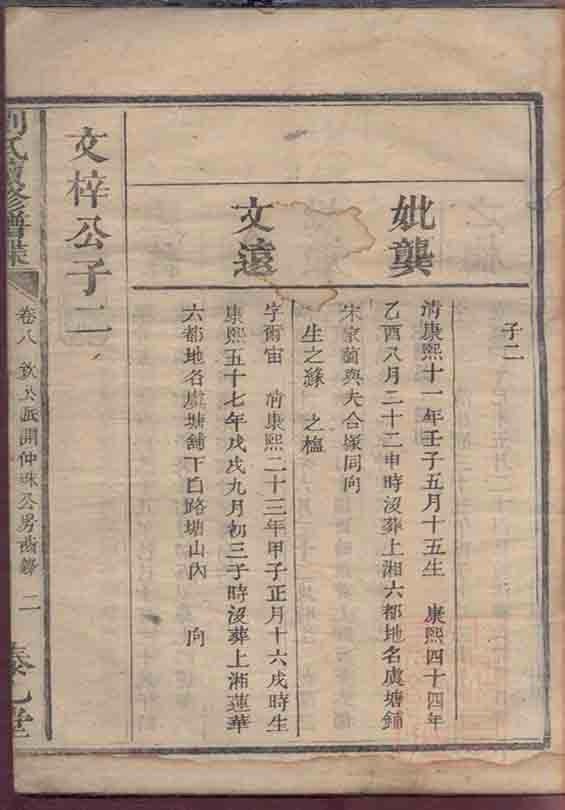 子二
妣龔
清康熙十一年壬子五月十五生　康熙四十四年
乙酉八月二十二申時沒葬上湘六都地名虞塘鋪
宋家園與夫合塚同向
生之緣　之榅
文遠
字爾宙　清康熙二十三年甲子正月十六戌時生
康熙五十七年戊戌九月初三子時沒葬上湘蓮華
六都地名虞塘舖下白路塘山內　向
文梓公子二
氏 修譜牒
卷八　欽公派開仲珠公男齒錄　二
堂